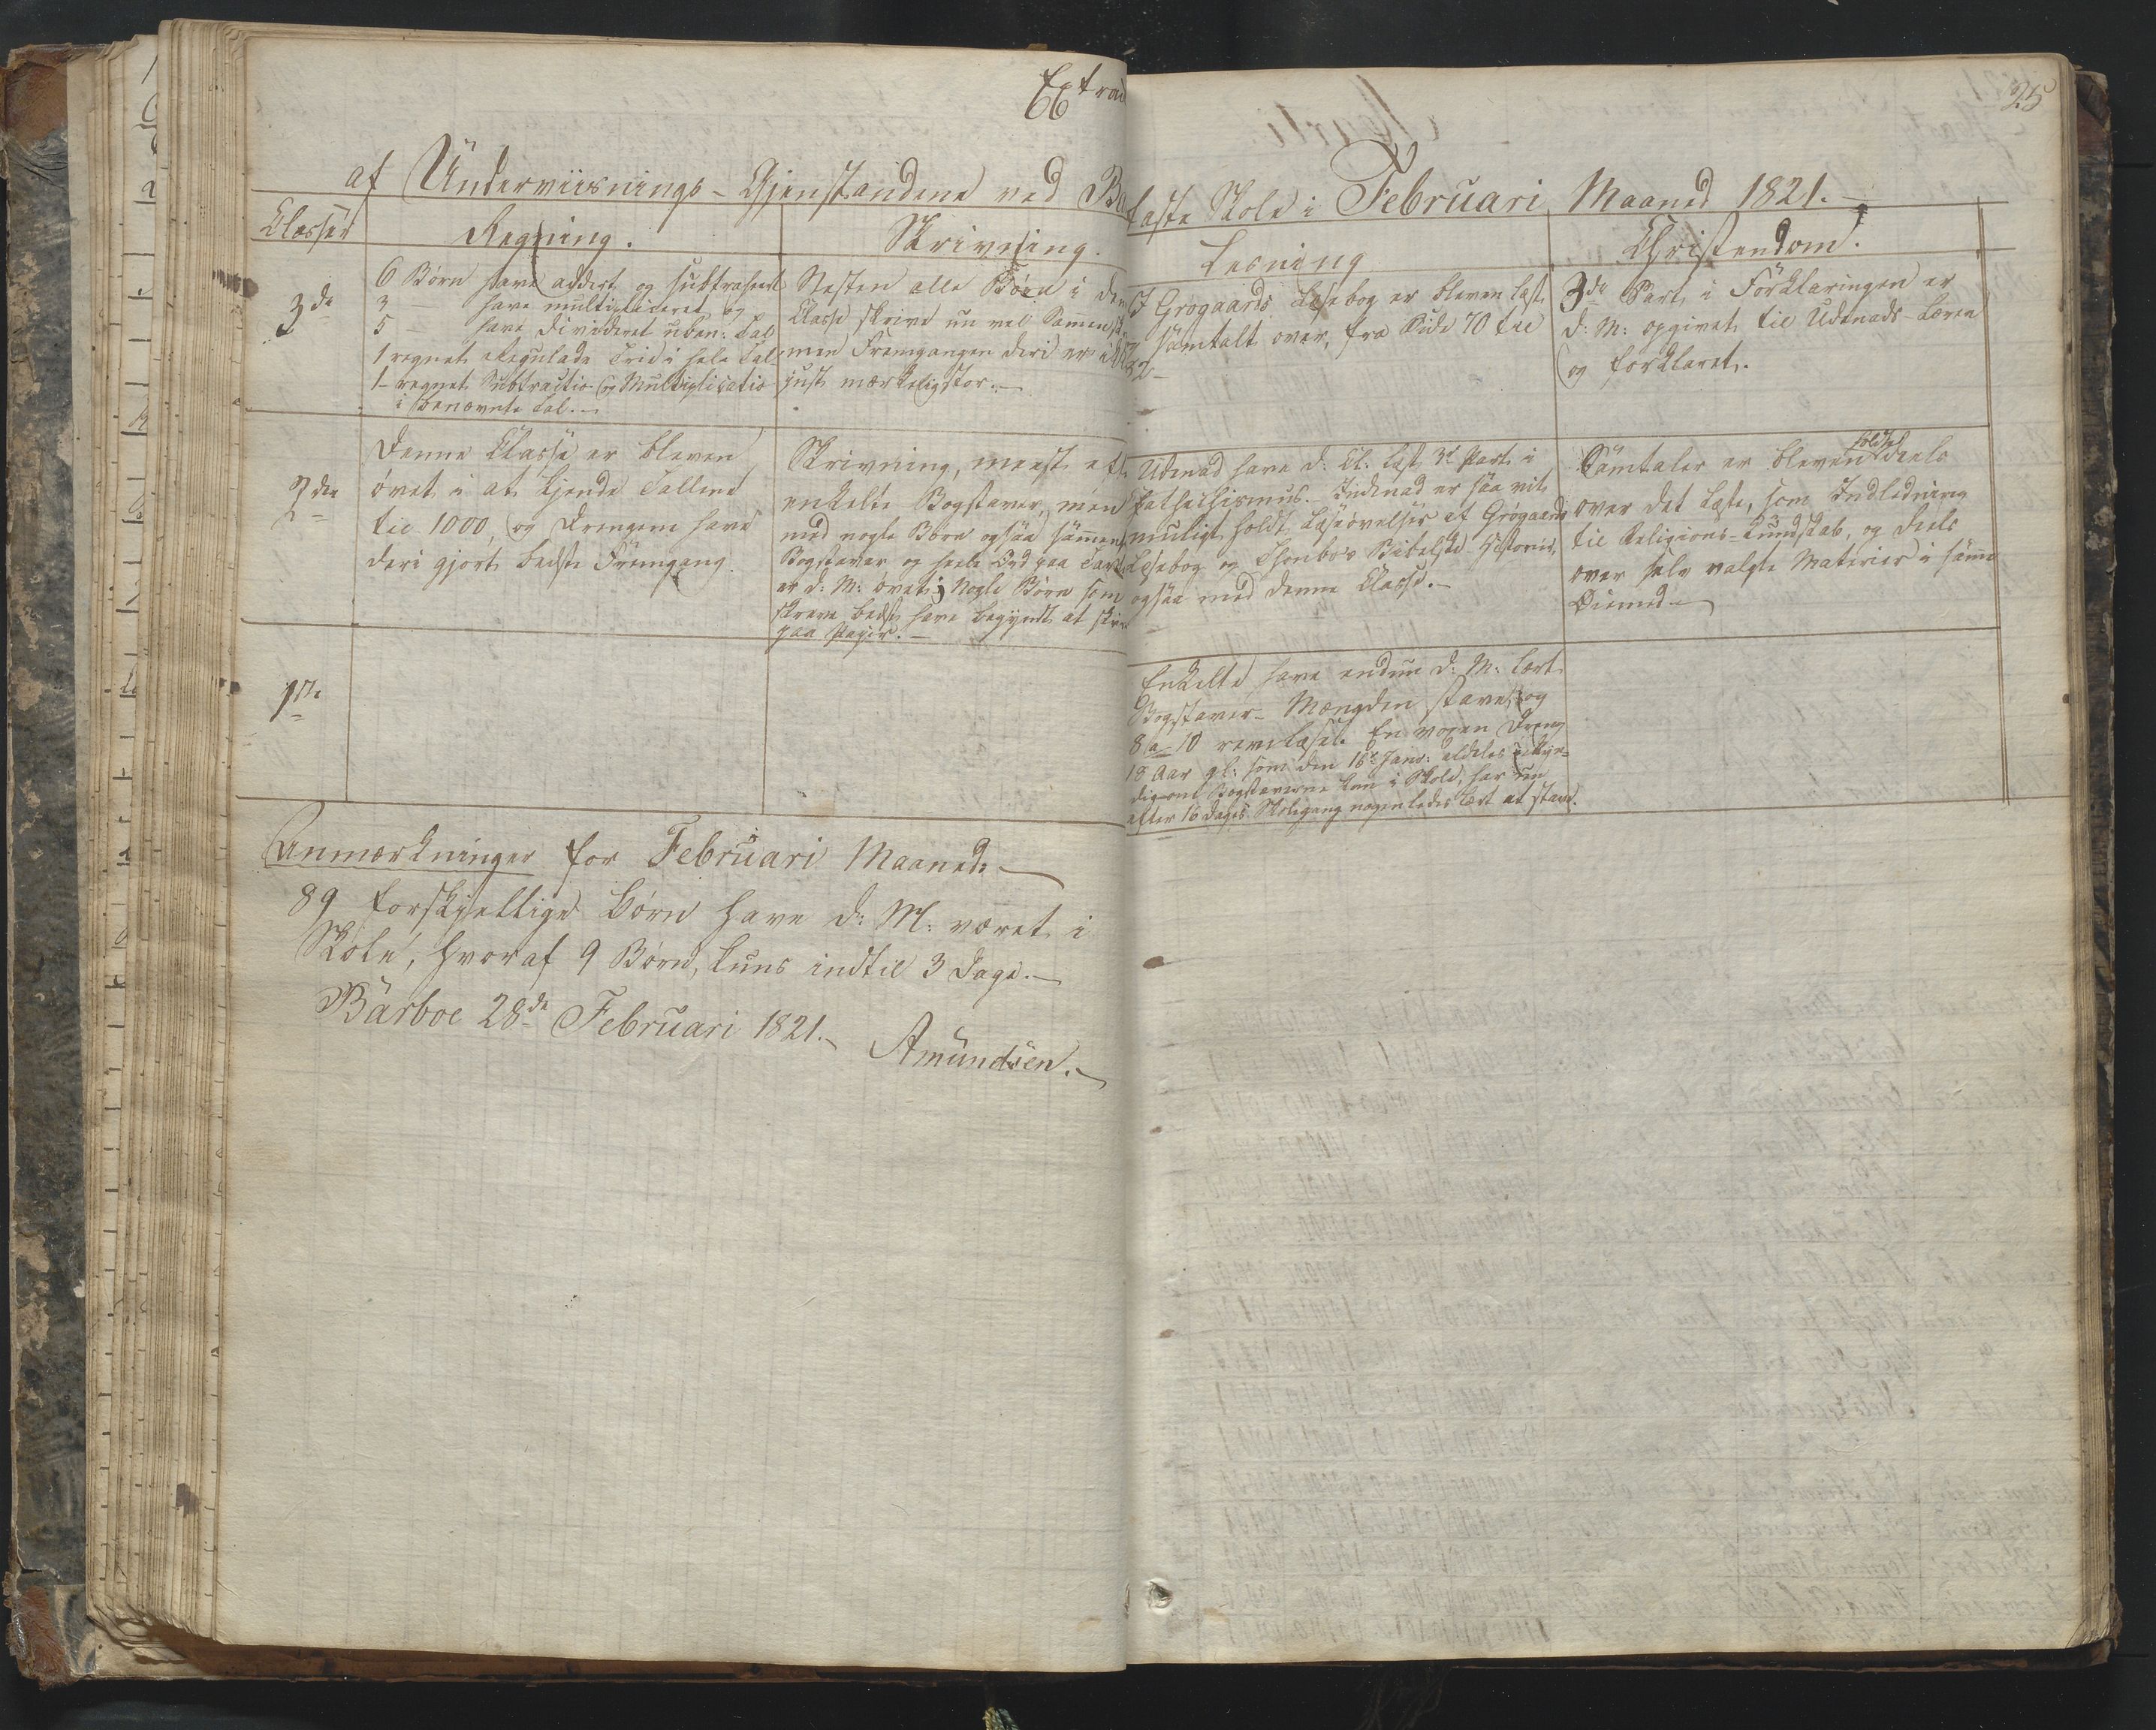 25
Extract
af Underviisnings-Gjenstandene ved faste Skole i Februari Maaned 1821.
Classer
Regning.
Skrivning.
Lesning
Christendom.
3de
6 Børn have addert og subtrahert
3 have multipliceret og
5 - have divideret uben: Tal
1 regnet Regulade Trid i hele Tal
1 - regnet Subtractio og Multiplicatio
i benævnte Tal.-
Nesten alle Børn i den
Classe skrive nu vel
men Fremgangen deri er ikke
just mærkelig stor.-
I Grøgaards Læsebog er bleven læst
samtalt over, fra Side 70 til
82-
3de Part i Forklaringen er
d: M: opgivet til Udenads-Læren
og forklaret.
2den
Denne Classe er bleven
øvet i at kjende Tallene
til 1000, og Drengene have
deri gjort bedste Fremgang.
Skrivning, meest af
enkelte Bogstaver, men
med nogle Børn ogsaa sammens.
Bogstaver og heele Ord paa
er d: M: øvet; Nogle Børn som
skreve bedst have begyndt at skrive
paa Papir.-
Udenad have d: Cl: læst 3d Part i
Cathechismus.- Indenad er saa vit
muligt holdt Læseøvelser af Grøgaards
Læsebog og Thonboes Bibelske Historie,
ogsaa med denne Classe.-
Samtaler er bleven holdt deels
over det læste, som Indledning
til Religions-kundskab, og deels
over selv valgte Materier i samme
Øiemed-
1ste
Enkelte have endnu d: M: lært
Bogstaver- Mængden stavet og
8 a 10 En voxen Dreng
18 Aar gl: som den 16de Janr: aldeles ukyn-
dig om Bogstaverne kom i Skole, har nu
efter 16 Dages Skolegang nogenledes lært at stave.
Anmærkninger for Februari Maaned:-
89 forskjellige Børn have d: M: været i
Skole, hvoraf 9 Børn, kuns indtil 3 Dage.-
Barboe 28de Februari 1821.- Amundsen.-